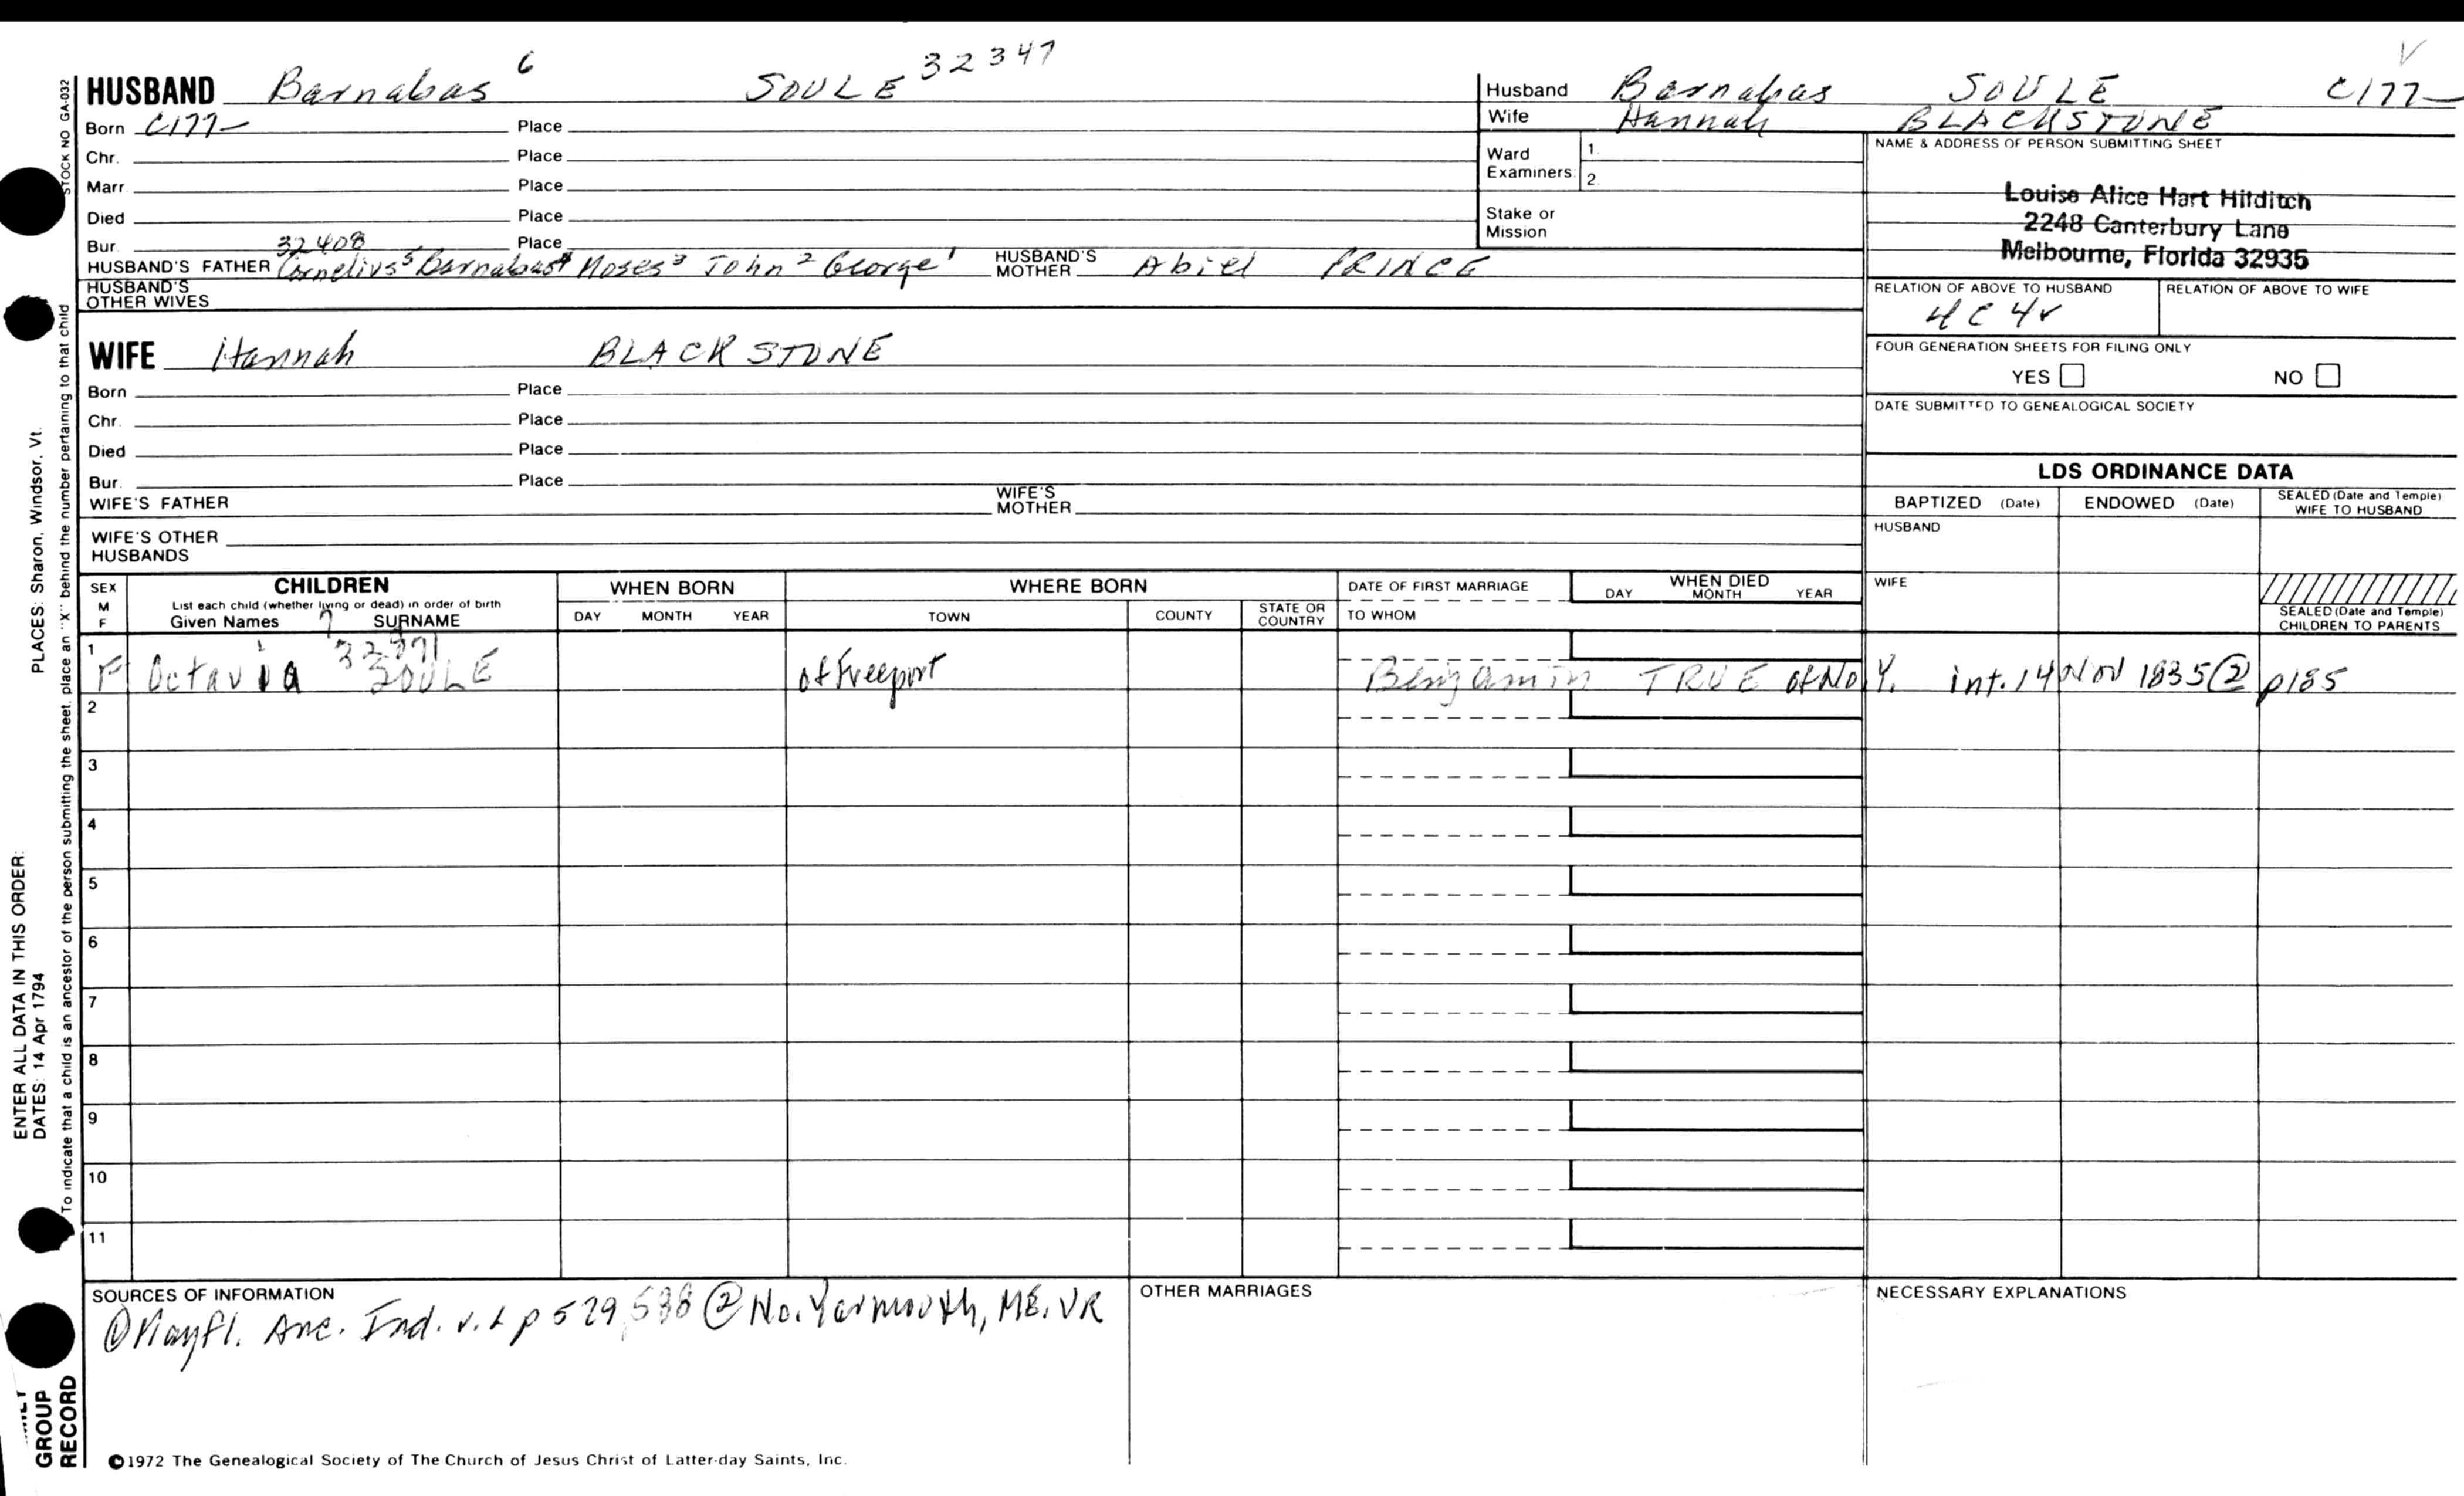 HUSBAND Barnabas 6 SOULE 32347
Born C177–  Place
Chr.  Place
Marr.  Place
Died  Place
Bur.  Place
32408
HUSBAND'S FATHER Cornelius 5 Barnabas 4 Moses 3 John 2 George 1  HUSBAND'S MOTHER Abiel PRINCE
HUSBAND'S OTHER WIVES
WIFE Hannah BLACKSTONE
Born  Place
Chr.  Place
Died  Place
Bur.  Place
WIFE'S FATHER  WIFE'S MOTHER
WIFE'S OTHER HUSBANDS
Husband Barnabas SOULE C177–
Wife Hannah BLACKSTONE
Ward Examiners: 1. 2.
Stake or Mission
NAME & ADDRESS OF PERSON SUBMITTING SHEET
Louise Alice Hart Hilditch
2248 Canterbury Lane
Melbourne, Florida 32935
RELATION OF ABOVE TO HUSBAND  RELATION OF ABOVE TO WIFE
4C4r
FOUR GENERATION SHEETS FOR FILING ONLY
YES  NO
DATE SUBMITTED TO GENEALOGICAL SOCIETY
LDS ORDINANCE DATA
BAPTIZED (Date)  ENDOWED (Date)  SEALED (Date and Temple) WIFE TO HUSBAND
HUSBAND
WIFE
SEALED (Date and Temple) CHILDREN TO PARENTS
SEX M F
CHILDREN
List each child (whether living or dead) in order of birth
Given Names 7 SURNAME
WHEN BORN
DAY MONTH YEAR
WHERE BORN
TOWN COUNTY STATE OR COUNTRY
DATE OF FIRST MARRIAGE
TO WHOM
WHEN DIED
DAY MONTH YEAR
1 F Octavia SOULE  of Freeport  Benjamin TRUE of No Y. int. 14 Nov 1835 ② p185
2
3
4
5
6
7
8
9
10
11
SOURCES OF INFORMATION
① Mayfl. Anc. Ind. p 529, 538 ② No. Yarmouth, ME. VR
OTHER MARRIAGES
NECESSARY EXPLANATIONS
©1972 The Genealogical Society of The Church of Jesus Christ of Latter-day Saints, Inc.
STOCK NO GA-032
To indicate that a child is an ancestor of the person submitting the sheet, place an "X" behind the number pertaining to that child
ENTER ALL DATA IN THIS ORDER:
PLACES: Sharon, Windsor, Vt.
DATES: 14 Apr 1794
GROUP
RECORD